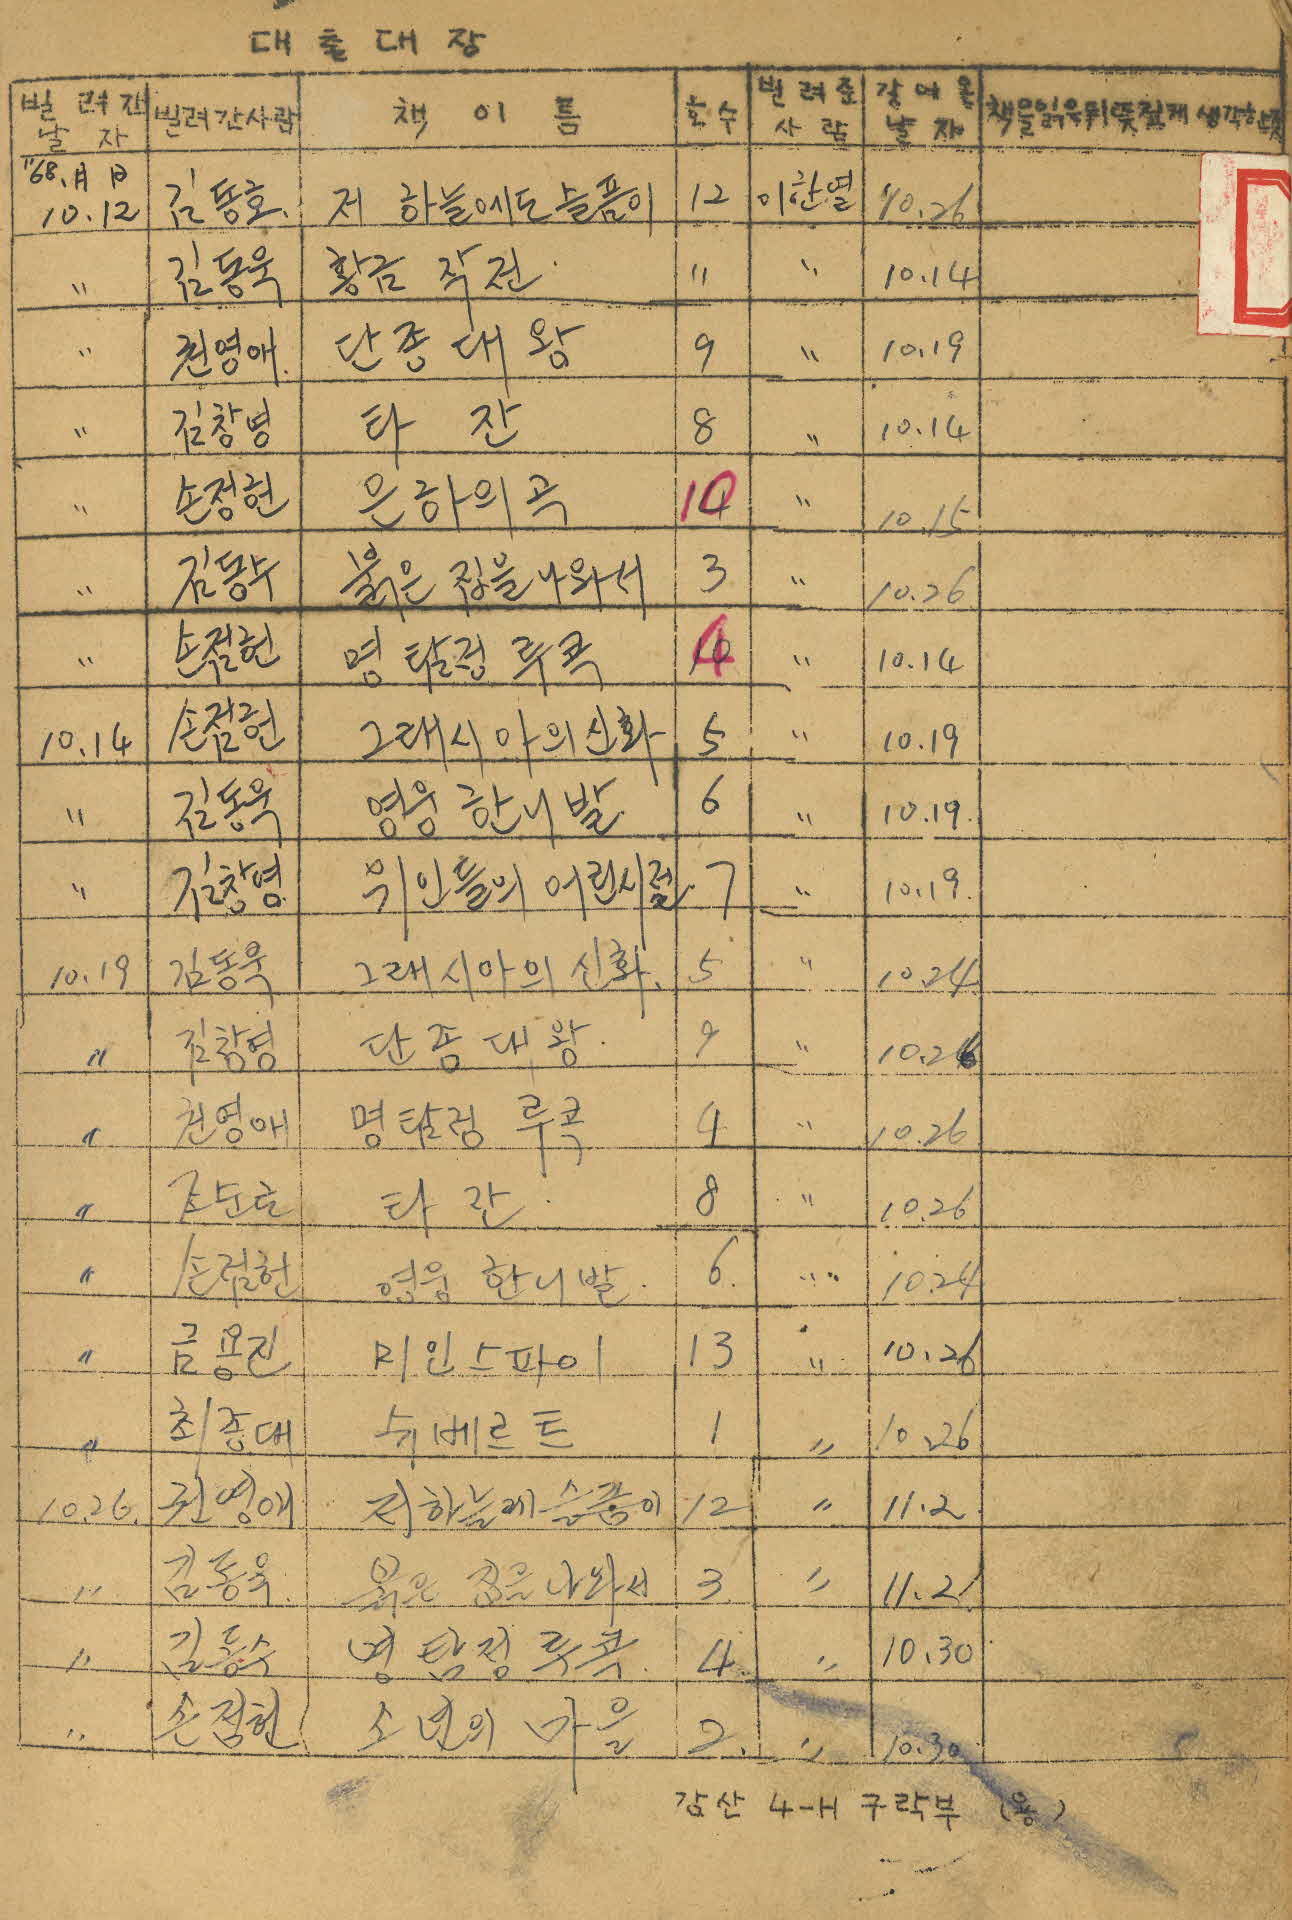 대출대장
빌려간 날자 빌려간사람 책이름 호수 빌려준 사람 갈여온 날자 책을읽은뒤뜻깊게 생각한뜻
"68.月 日
10.12 김동호. 저 하늘에도 슬픔이 12 이한열 10.26
" 김동욱 황금 작전. " " 10.14
" 권영애. 단종대왕 9 " 10.19
" 김창영 타잔 8 " 10.14
" 손점현 은하의곡 10 " 10.15
" 김동수 붉은 집을나와서 3 " 10.26
" 손점현 명탐정 루콕 4 " 10.14
10.14 손점현 그래시아의신화 5 " 10.19
" 김동욱 영웅 한니발 6 " 10.19.
" 김창영. 위인들의 어린시절. 7 " 10.19.
10.19 김동욱 그래시아의 신화. 5 " 10.24
" 김창영 단종대왕. 9 " 10.26
" 권영애 명탐정 루콕 4 " 10.26
" 타잔. 8 " 10.26
" 손점헌 영웅 한니발. 6. " 10.24
" 금용진 미인스파이 13 " 10.26
" 최종대 슈베르트 1 " 10.26
10.26. 권영애 저하늘에 슬픔이 12 " 11.2
" 김동욱. 붉은 집을나와서 3 " 11.2
" 김동수 명탐정 루콕. 4 " 10.30
" 손점헌 소년의 마을 2. " 10.30
감산 4-H 구락부 (용)